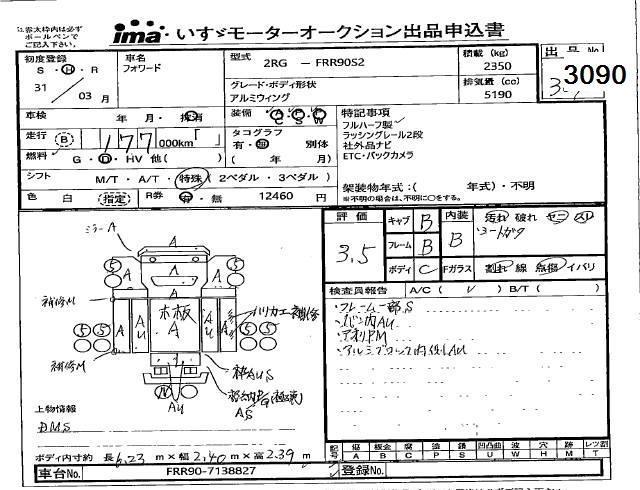 注意太枠内は必ず
ボールペンで
ご記入下さい。
ima いすゞモーターオークション出品申込書
初度登録
S・H・R
31 / 03 月
車名
フォワード
型式 2RG - FRR90S2
グレード・ボディ形状
アルミウィング
積載 (kg)
2350
排気量 (cc)
5190
出品 No
3090
車検 年・月・抹有
装備 A P P C S W
走行 B 177 000km「 」
タコグラフ
有・無 別体
( 年 月)
燃料 G・D・HV 他( )
シフト M/T・A/T・特殊 (2ペダル・3ペダル)
色 白 指定 R券 有・無 12460 円
特記事項
フルハーフ製
ラッシングレール2段
社外品ナビ
ETC・バックカメラ
架装物年式:( 年式)・不明
※不明の場合は、不明に○をする。
評価 3.5
キャブ B
フレーム B
ボディ C
内装 B
汚れ 破れ コゲ スリ
シートカケ
Fガラス 割れ 線 点傷 イバリ
検査員報告 A/C ( / ) B/T ( )
・フレーム一部S
・パン内AU
・アオリPM
・アルミブロック内側AU
ミラーA
補修M
補修M
木板
A
A
A
A
A
AU
AU
A
5
5
5
5
5
5
枠AUS
AS
AU
上物情報
D.M.S
ボディ内寸約 長 6.23 m×幅 2.40 m×高 2.39 m
記号 傷 板金 腐 塗 錆 凹凸曲 波 穴 跡 レツ割
A B C P S U W H M T
車台No. FRR90-7138827
登録No.